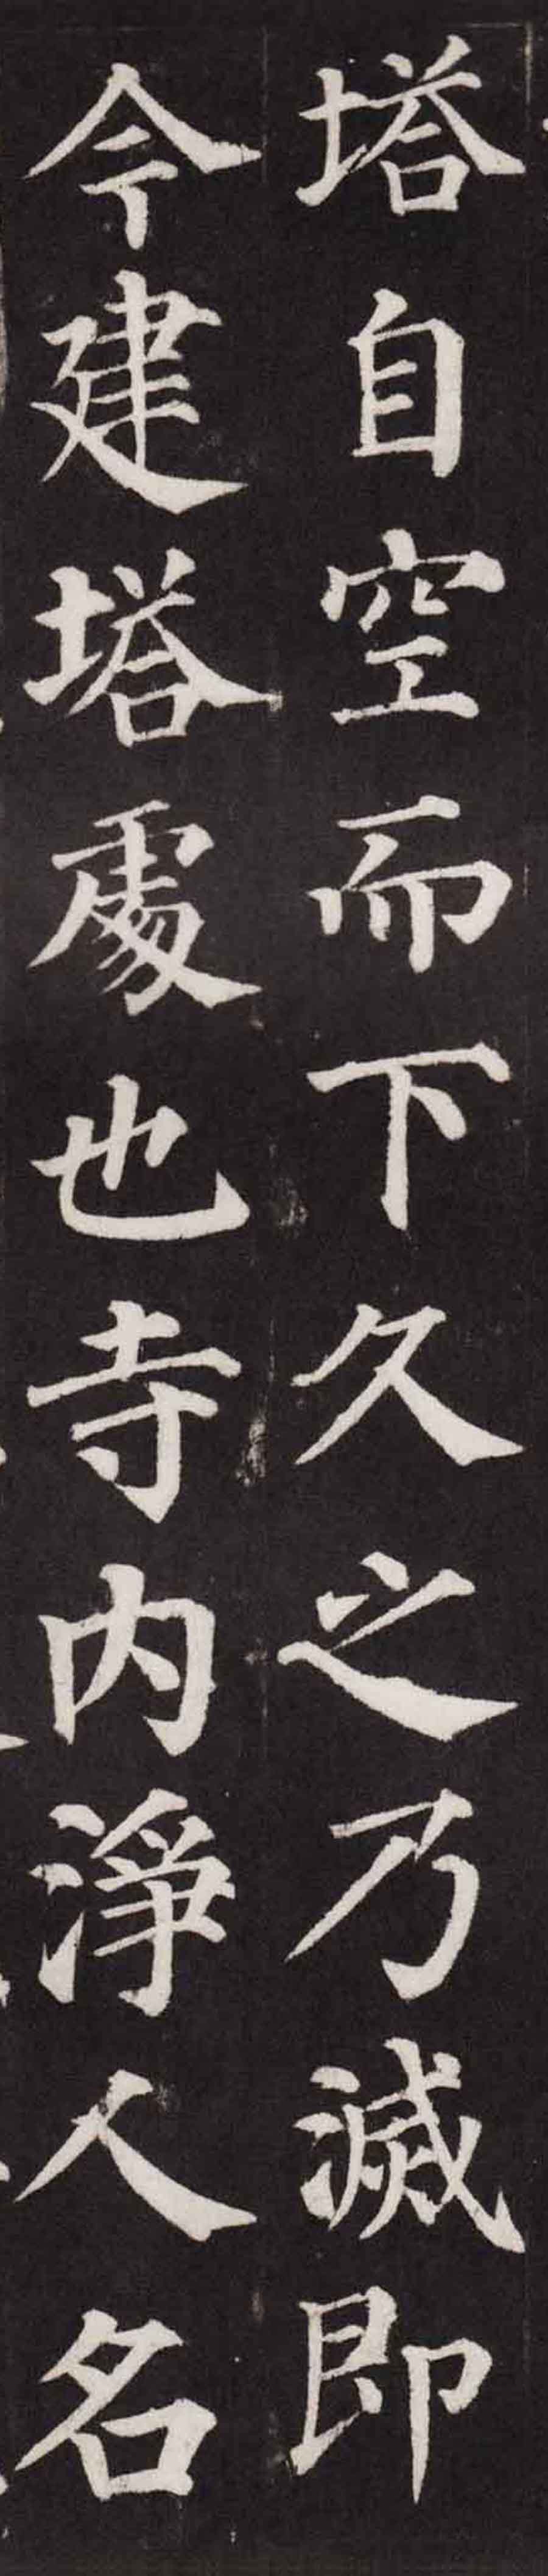 塔自空而下久之乃滅即
今建塔處也寺内淨人名